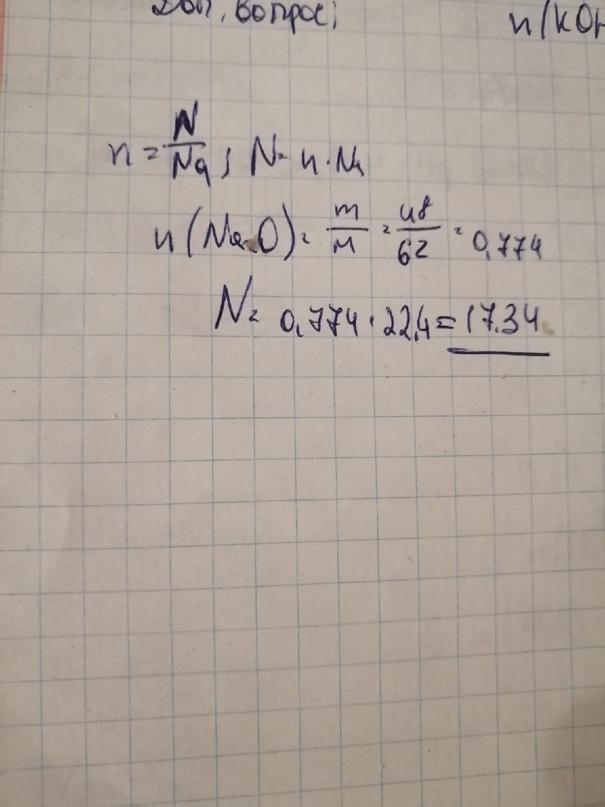 Доп. вопрос;
n(KOH
n = N/Na; N = n · Na
n(Na₂O) = m/M = 48/62 = 0,774
N = 0,774 · 22,4 = 17,34